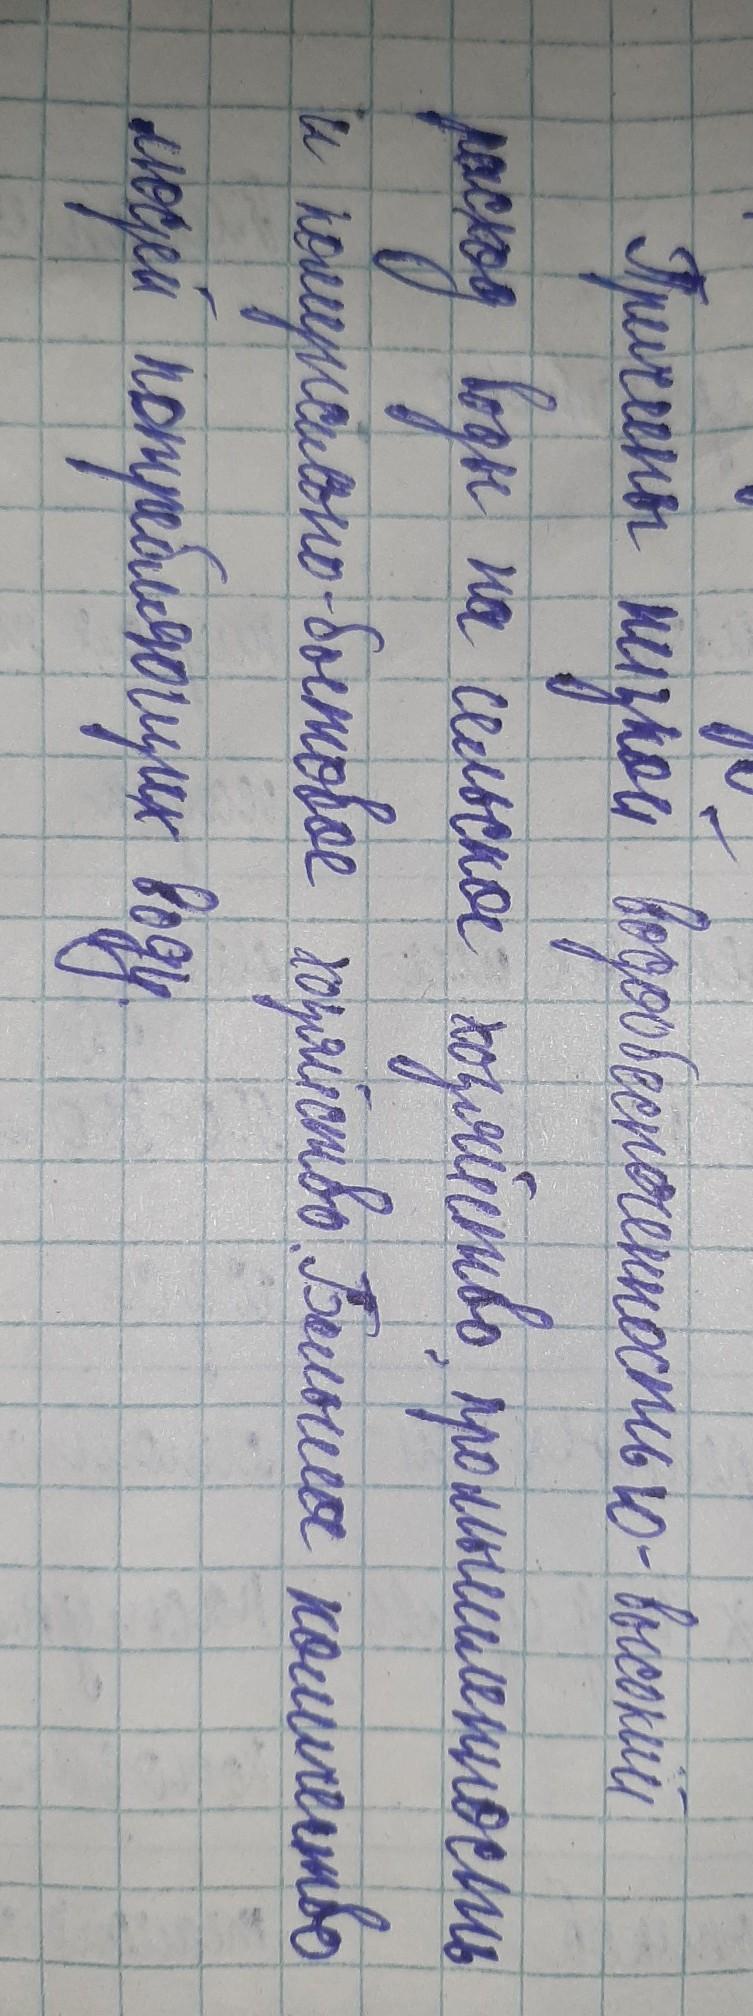 Причины низкой водообеспеченностью - высокий
расход воды на сельское хозяйство, промышленность
и комунсально-бытовое хозяйство. Большое количество
людей потребляющих воду.